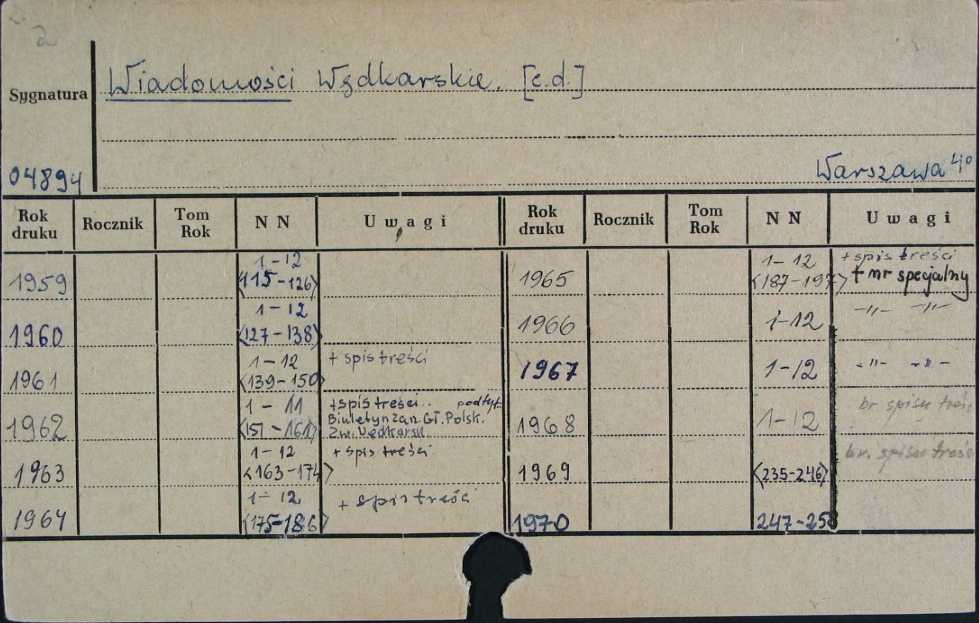 2
Wiadomości Wędkarskie. [c.d.]
Sygnatura
04894
Warszawa 4°
Rok druku Rocznik Tom Rok N N Uwagi Rok druku Rocznik Tom Rok N N Uwagi
1959 1-12 <115-126>
1960 1-12 <127-138>
1961 1-12 <139-150> + spis treści
1962 1-11 <151-161> + spis treści. podtyt. Biuletyn Zarz. Gł. Polsk. Zw. Wędkarsk.
1963 1-12 <163-174> + spis treści
1964 1-12 <175-186> + spis treści
1965 1-12 <187-197> + spis treści + nr specjalny
1966 1-12 -"- -"-
1967 1-12 -"- -"-
1968 1-12 br spisu treśc
1969 <235-246> br. spisu treśc
1970 247-258